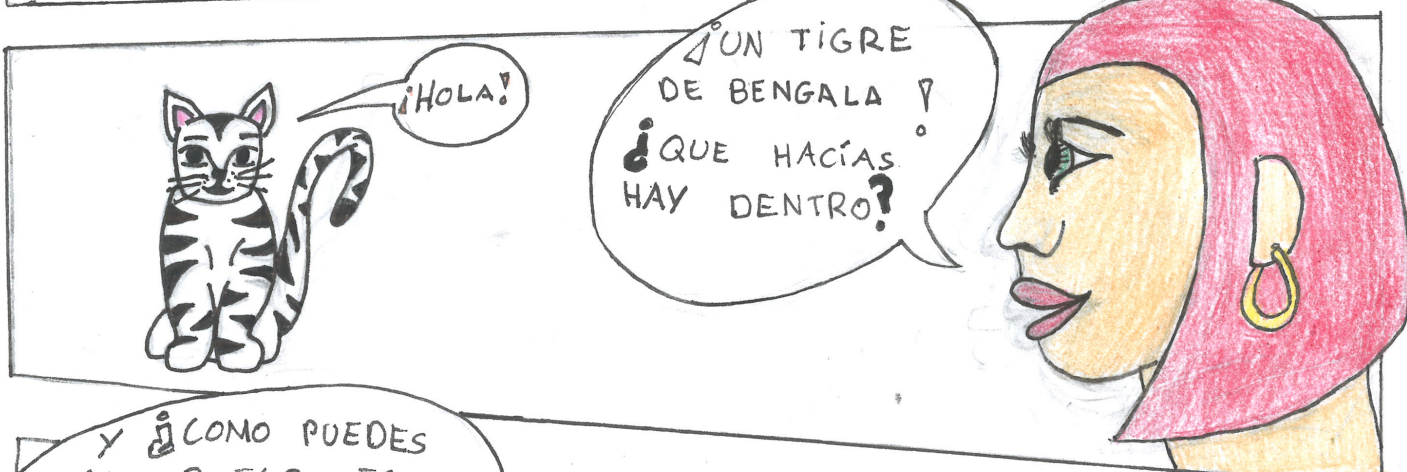 ¡HOLA!
¡UN TIGRE
DE BENGALA !
¿QUE HACÍAS
HAY DENTRO?
Y ¿COMO PUEDES